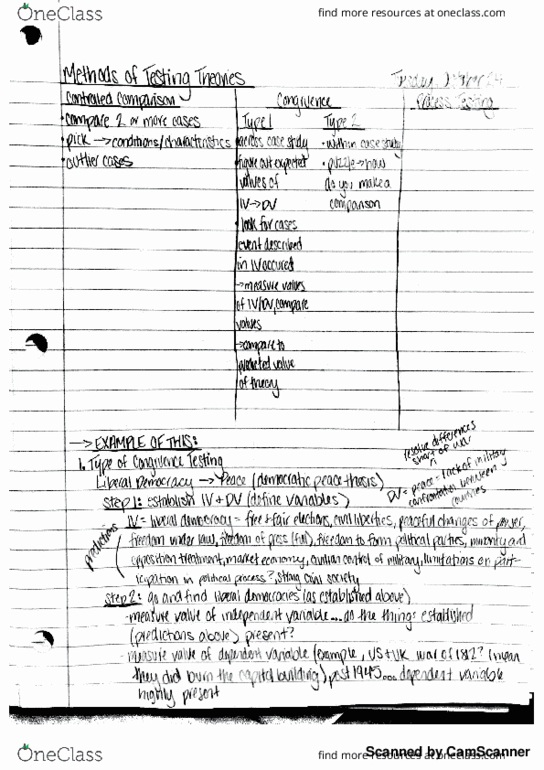 OneClass
find more resources at oneclass.com
Methods of Testing Theories
Controlled Comparison
• compare 2 or more cases
• pick → conditions/characteristics
• outlier cases
Congruence
Type 1
across case study
figure out expected
values of
IV→DV
• look for cases
event described
in IV occured
→ measure values
of IV/DV, compare
values
→ compare to
predicted value
of theory
Type 2
• within case study
• puzzle → how
do you make a
comparison
Process Testing
→ EXAMPLE OF THIS:
1. Type of Congruence Testing
Liberal Democracy → Peace (democratic peace thesis)
resolve differences
short of war
DV = peace = lack of military
confrontation between
countries
Step 1: establish IV + DV (define variables)
predictions
IV = liberal democracy = free + fair elections, civil liberties, peaceful changes of power,
freedom under law, freedom of press (full), freedom to form political parties, minority and
opposition treatment, market economy, civilian control of military, limitations on part-
icipation in political process?, strong civil society
Step 2: go and find liberal democracies (as established above)
- measure value of independent variable... do the things established
(predictions above) present?
- measure value of dependent variable (example, US + UK war of 1812? (mean
they did burn the capitol building), post 1945... dependent variable
highly present
Scanned by CamScanner
OneClass
find more resources at oneclass.com